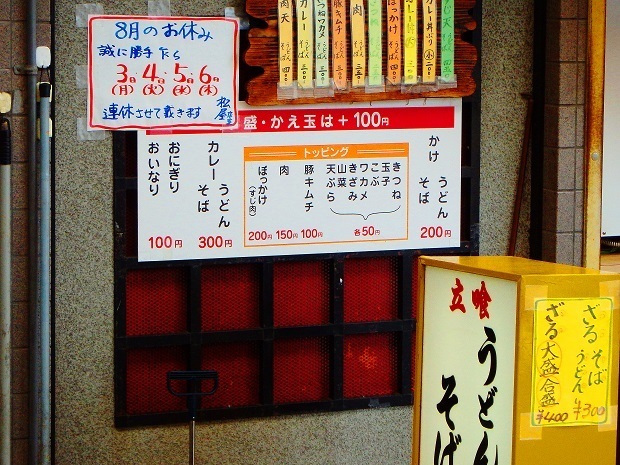 8月のお休み
誠に勝手乍ら
3日 4日 5日 6日
(月) (火) (水) (木)
連休させて戴きます
松屋
肉
うどん
そば
豚キムチ
うどん
そば
盛・かえ玉は+100円
かけ うどん そば
200円
トッピング
きつね
玉子
こぶ
ワカメ
きざみ
山菜
天ぷら
各50円
豚キムチ
100円
肉
150円
ぼっかけ(すじ肉)
200円
カレー うどん そば
300円
おにぎり
おいなり
100円
立喰
うどん
そば
ざるそば
うどん
¥300
ざる大盛合盛
¥400